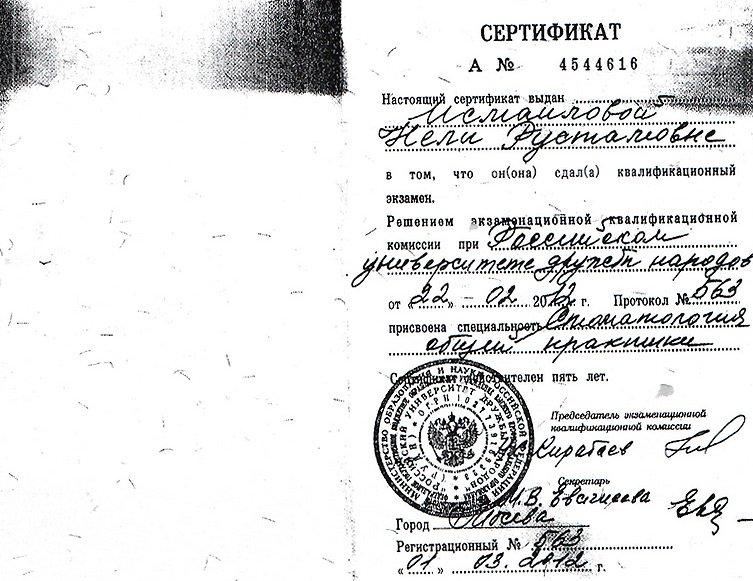 СЕРТИФИКАТ
А № 4544616
Настоящий сертификат выдан
Исмаиловой
Нели Рустамовне
в том, что он(она) сдал(а) квалификационный
экзамен.
Решением экзаменационной квалификационной
комиссии при Российском
университете дружбы народов
от «22» - 02 2012 г. Протокол № 563
присвоена специальность Стоматология
общей практики
Сертификат действителен пять лет.
Председатель экзаменационной
квалификационной комиссии
Кирабаев
Секретарь
М.В.
Город Москва
Регистрационный № 563
«01» 03. 2012 г.